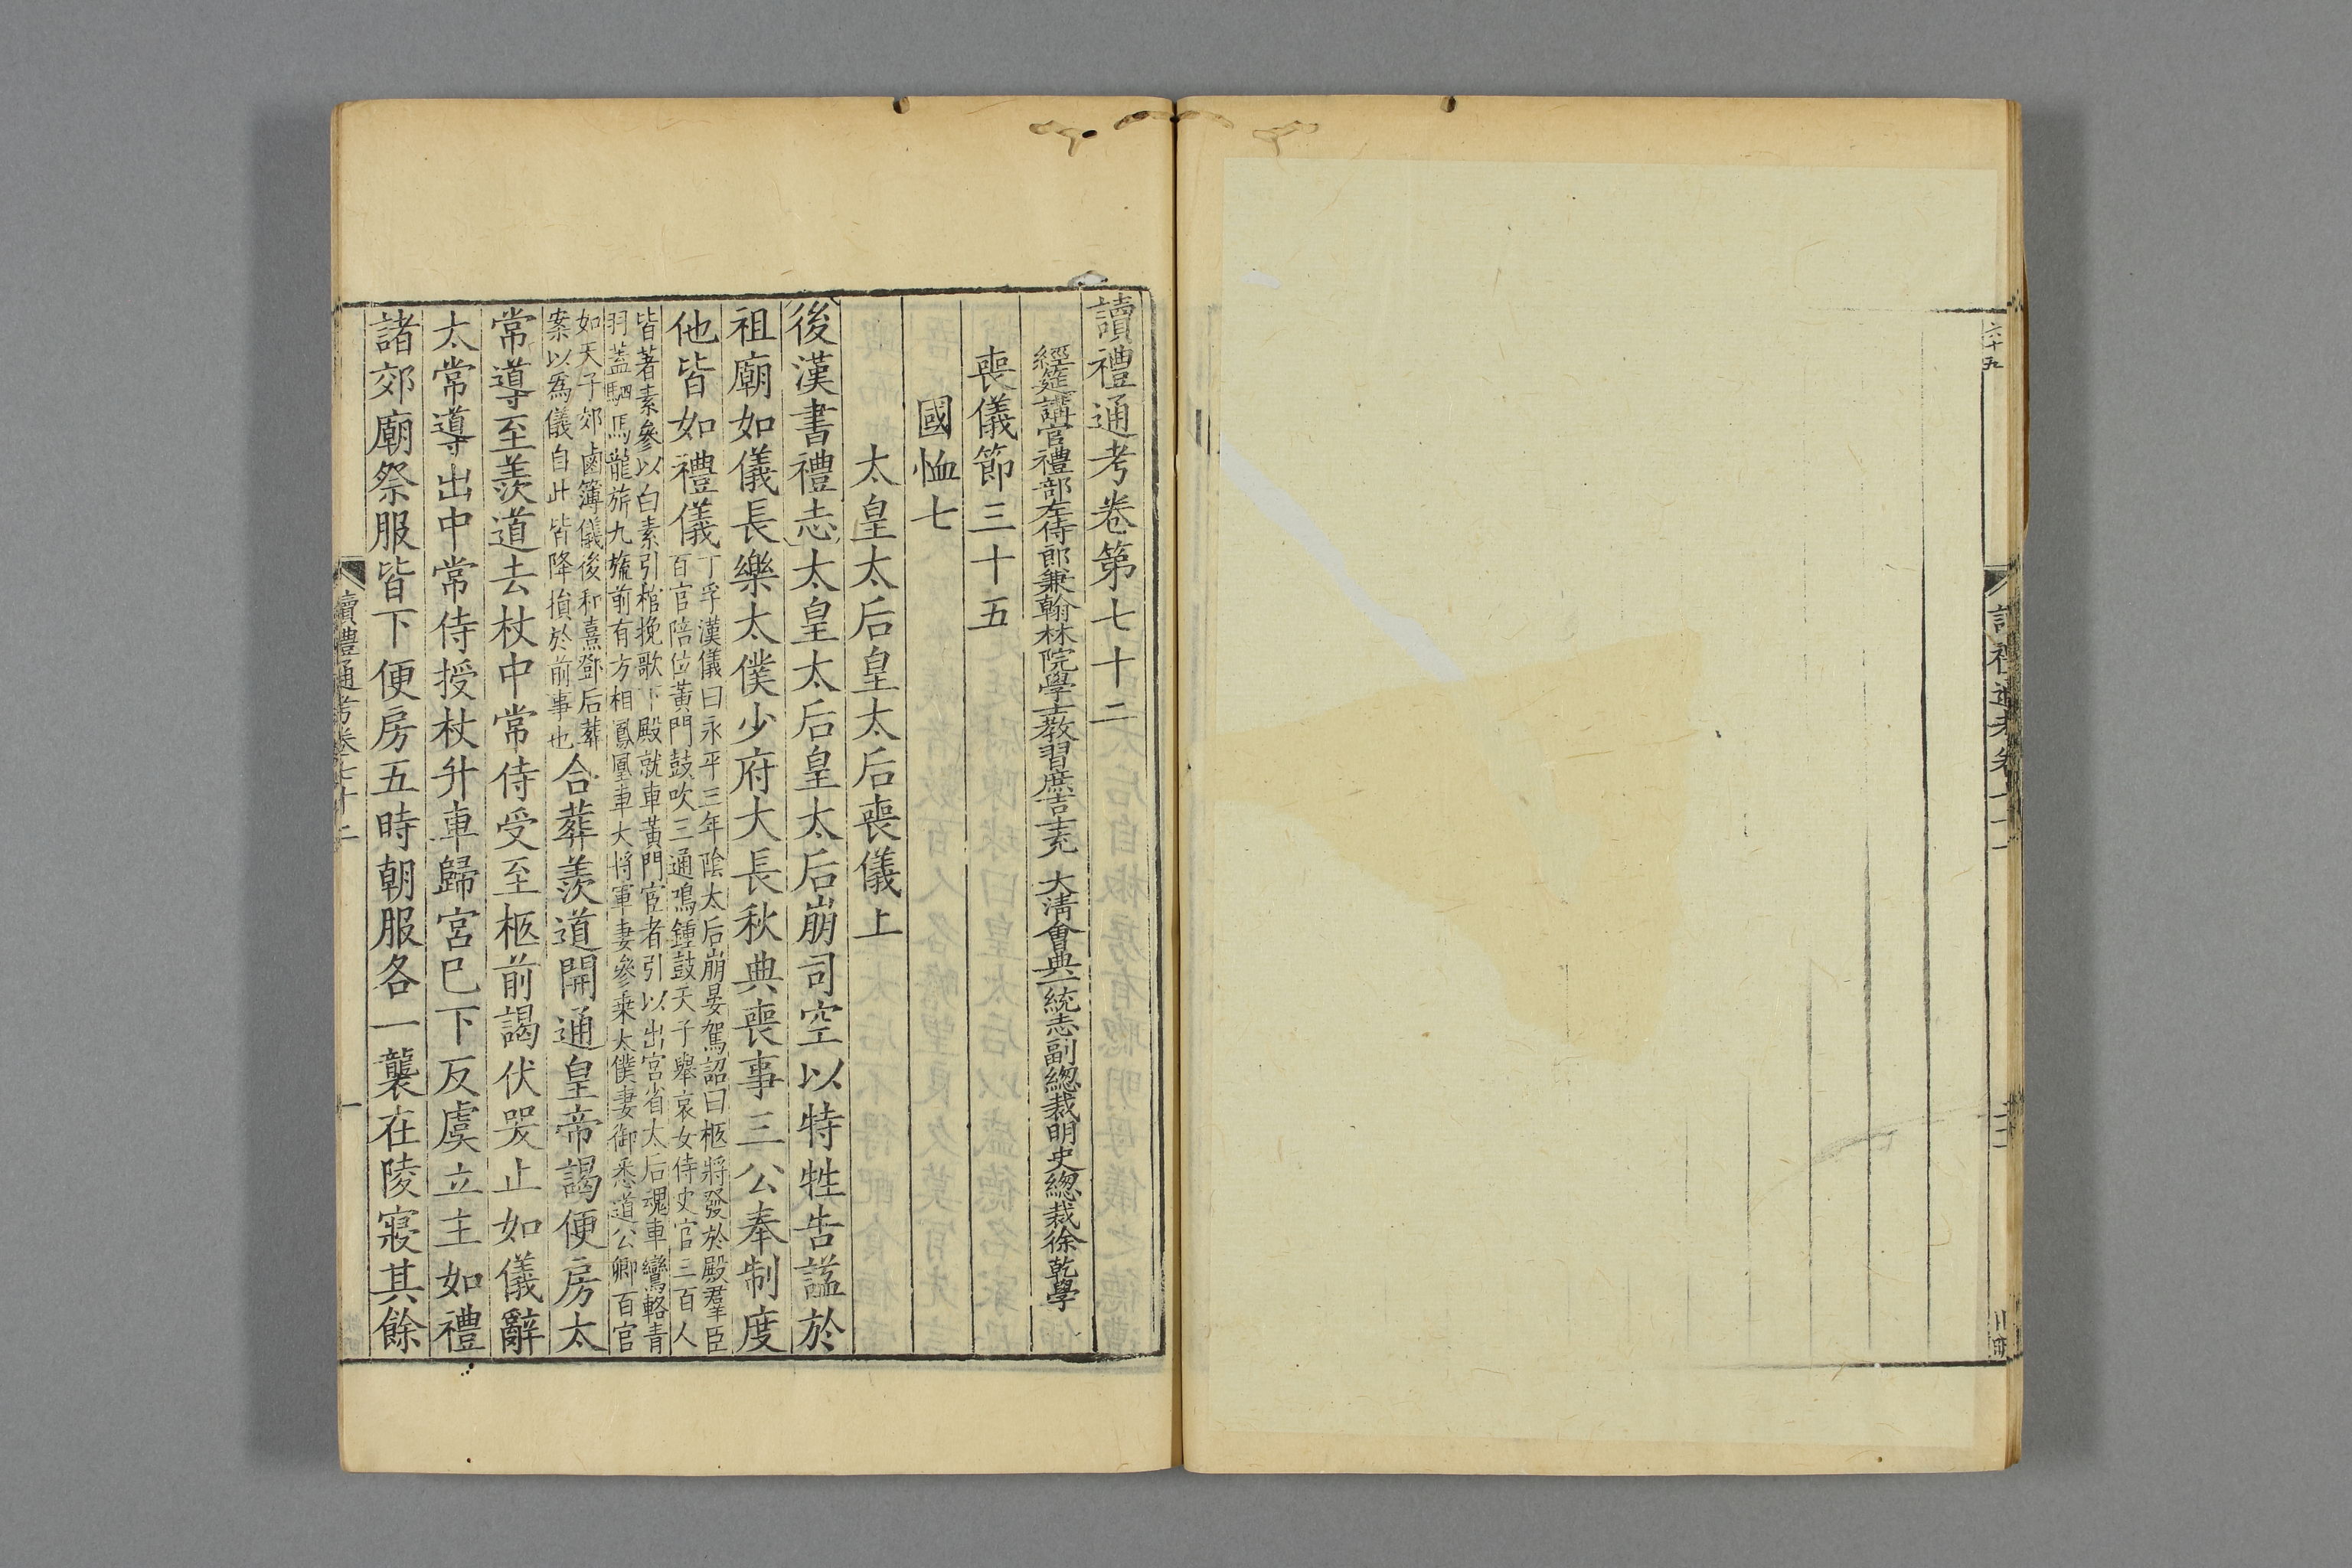 讀禮通考卷第七十二
經筵講官禮部左侍郎兼翰林院學士教習庶吉士充 大淸會典一統志副總裁明史總裁徐乾學
喪儀節三十五
國恤七
太皇太后皇太后喪儀上
後漢書禮志太皇太后皇太后崩司空以特牲告謚於
祖廟如儀長樂太僕少府大長秋典喪事三公奉制度
他皆如禮儀
丁孚漢儀曰永平三年陰太后崩晏駕詔曰柩將發於殿羣臣
百官陪位黃門鼓吹三通鳴鍾鼓天子舉哀女侍史官三百人
皆著素參以白素引棺挽歌下殿就車黃門宦者引以出宮省太后魂車鸞輅靑
羽蓋駟馬龍旂九旒前有方相鳳凰車大將軍妻參乗太僕妻御悉道公卿百官
如天子郊鹵簿儀後和熹鄧后葬
案以爲儀自此皆降損於前事也
合葬羨道開通皇帝謁便房太
常導至羨道去杖中常侍受至柩前謁伏哭止如儀辭
太常導出中常侍授杖升車歸宮已下反虞立主如禮
諸郊廟祭服皆下便房五時朝服各一襲在陵寢其餘
讀禮通考卷七十二
一
六十五